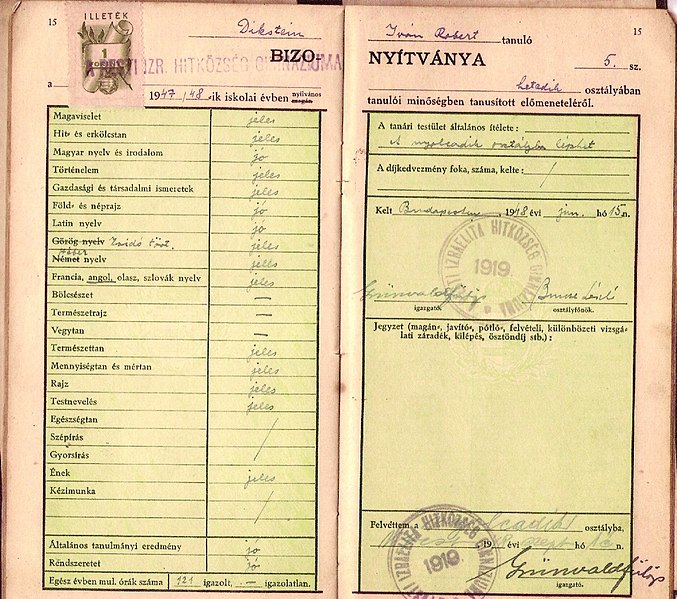 15
ILLETÉK
1
FORINT
Dikstein
BIZO-
A PESTI IZR. HITKÖZSÉG GIMNÁZIUMA
a
1947/48-ik iskolai évben nyilvános magán-
Magaviselet jeles
Hit- és erkölcstan jeles
Magyar nyelv és irodalom jó
Történelem jeles
Gazdasági és társadalmi ismeretek jeles
Föld- és néprajz jó
Latin nyelv jó
Görög nyelv Zsidó tört. jeles
Német nyelv jeles
Francia, angol, olasz, szlovák nyelv jeles
Bölcsészet —
Természetrajz —
Vegytan —
Természettan jeles
Mennyiségtan és mértan jeles
Rajz jeles
Testnevelés jeles
Egészségtan
Szépírás
Gyorsírás
Ének jeles
Kézimunka
Általános tanulmányi eredmény jó
Rendszeretet jó
Egész évben mul. órák száma 121 igazolt, — igazolatlan.
15
Iván Robert tanuló
NYÍTVÁNYA 5. sz.
hetedik osztályában
tanulói minőségben tanusított előmeneteléről.
A tanári testület általános ítélete:
A nyolcadik osztályba léphet
A díjkedvezmény foka, száma, kelte: /
Kelt Budapesten 1948 évi jun. hó 15 n.
A PESTI IZRAELITA HITKÖZSÉG GIMNÁZIUMA
1919
Grünwald Fülöp
igazgató. osztályfőnök.
Jegyzet (magán-, javító-, pótló-, felvételi, különbözeti vizsgá-
lati záradék, kilépés, ösztöndíj stb.):
Felvéttem a osztályba,
19 évi szept hó n.
IZRAELITA HITKÖZSÉG GIMNÁZIUMA
1919
Grünwald Fülöp
igazgató.